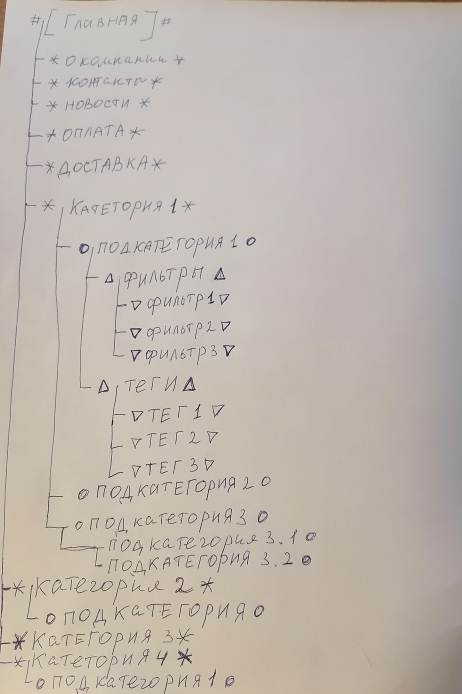 #[ГЛАВНАЯ]#
*О компании*
*контакты*
*новости*
*ОПЛАТА*
*ДОСТАВКА*
*КАТЕГОРИЯ 1*
○ПОДКАТЕГОРИЯ 1○
△ФИЛЬТРЫ△
▽ФИЛЬТР1▽
▽ФИЛЬТР2▽
▽ФИЛЬТР3▽
△ТЕГИ△
▽ТЕГ1▽
▽ТЕГ2▽
▽ТЕГ3▽
○ПОДКАТЕГОРИЯ 2○
○ПОДКАТЕГОРИЯ 3○
ПОДКАТЕГОРИЯ 3.1○
ПОДКАТЕГОРИЯ 3.2○
*КАТЕГОРИЯ 2*
○ПОДКАТЕГОРИЯ○
*КАТЕГОРИЯ 3*
*КАТЕГОРИЯ 4*
○ПОДКАТЕГОРИЯ 1○